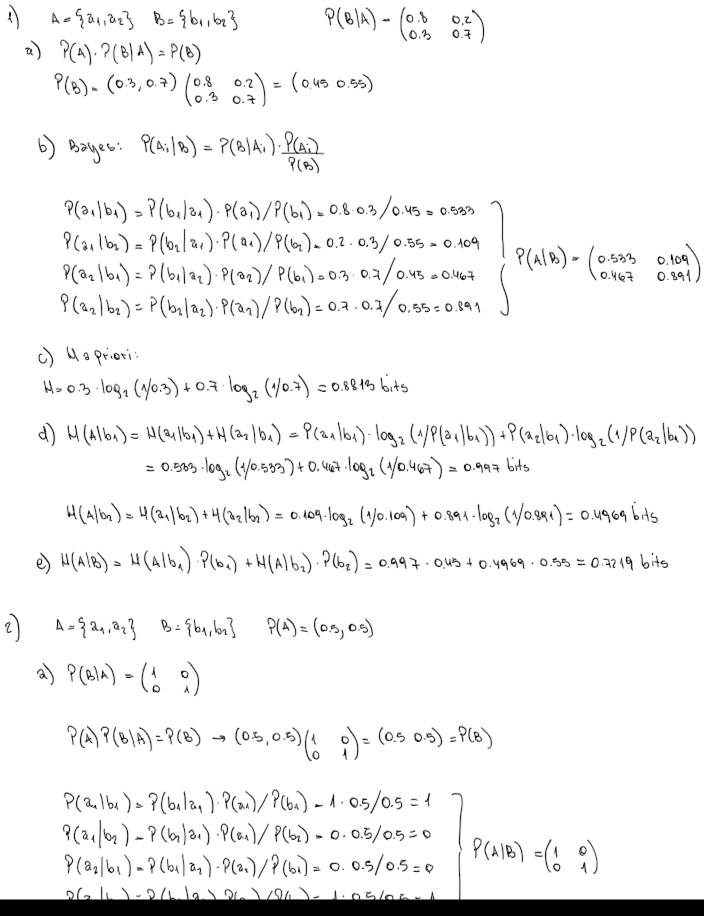 1) A = {a₁,a₂} B = {b₁,b₂} P(B|A) = (0.8 0.2
0.3 0.7)
a) P(A)·P(B|A) = P(B)
P(B) = (0.3, 0.7) (0.8 0.2
0.3 0.7) = (0.45 0.55)
b) Bayes: P(Aᵢ|B) = P(B|Aᵢ)·P(Aᵢ)/P(B)
P(a₁|b₁) = P(b₁|a₁)·P(a₁)/P(b₁) = 0.8·0.3/0.45 = 0.533
P(a₁|b₂) = P(b₂|a₁)·P(a₁)/P(b₂) = 0.2·0.3/0.55 = 0.109
P(a₂|b₁) = P(b₁|a₂)·P(a₂)/P(b₁) = 0.3·0.7/0.45 = 0.467
P(a₂|b₂) = P(b₂|a₂)·P(a₂)/P(b₂) = 0.7·0.7/0.55 = 0.891
P(A|B) = (0.533 0.109
0.467 0.891)
c) H a priori:
H = 0.3·log₂(1/0.3) + 0.7·log₂(1/0.7) = 0.8813 bits
d) H(A|b₁) = H(a₁|b₁) + H(a₂|b₁) = P(a₁|b₁)·log₂(1/P(a₁|b₁)) + P(a₂|b₁)·log₂(1/P(a₂|b₁))
= 0.533·log₂(1/0.533) + 0.467·log₂(1/0.467) = 0.997 bits
H(A|b₂) = H(a₁|b₂) + H(a₂|b₂) = 0.109·log₂(1/0.109) + 0.891·log₂(1/0.891) = 0.4969 bits
e) H(A|B) = H(A|b₁)·P(b₁) + H(A|b₂)·P(b₂) = 0.997·0.45 + 0.4969·0.55 = 0.7219 bits
2) A = {a₁,a₂} B = {b₁,b₂} P(A) = (0.5, 0.5)
a) P(B|A) = (1 0
0 1)
P(A)P(B|A) = P(B) → (0.5, 0.5)(1 0
0 1) = (0.5 0.5) = P(B)
P(a₁|b₁) = P(b₁|a₁)·P(a₁)/P(b₁) = 1·0.5/0.5 = 1
P(a₁|b₂) = P(b₂|a₁)·P(a₁)/P(b₂) = 0·0.5/0.5 = 0
P(a₂|b₁) = P(b₁|a₂)·P(a₂)/P(b₁) = 0·0.5/0.5 = 0
P(A|B) = (1 0
0 1)